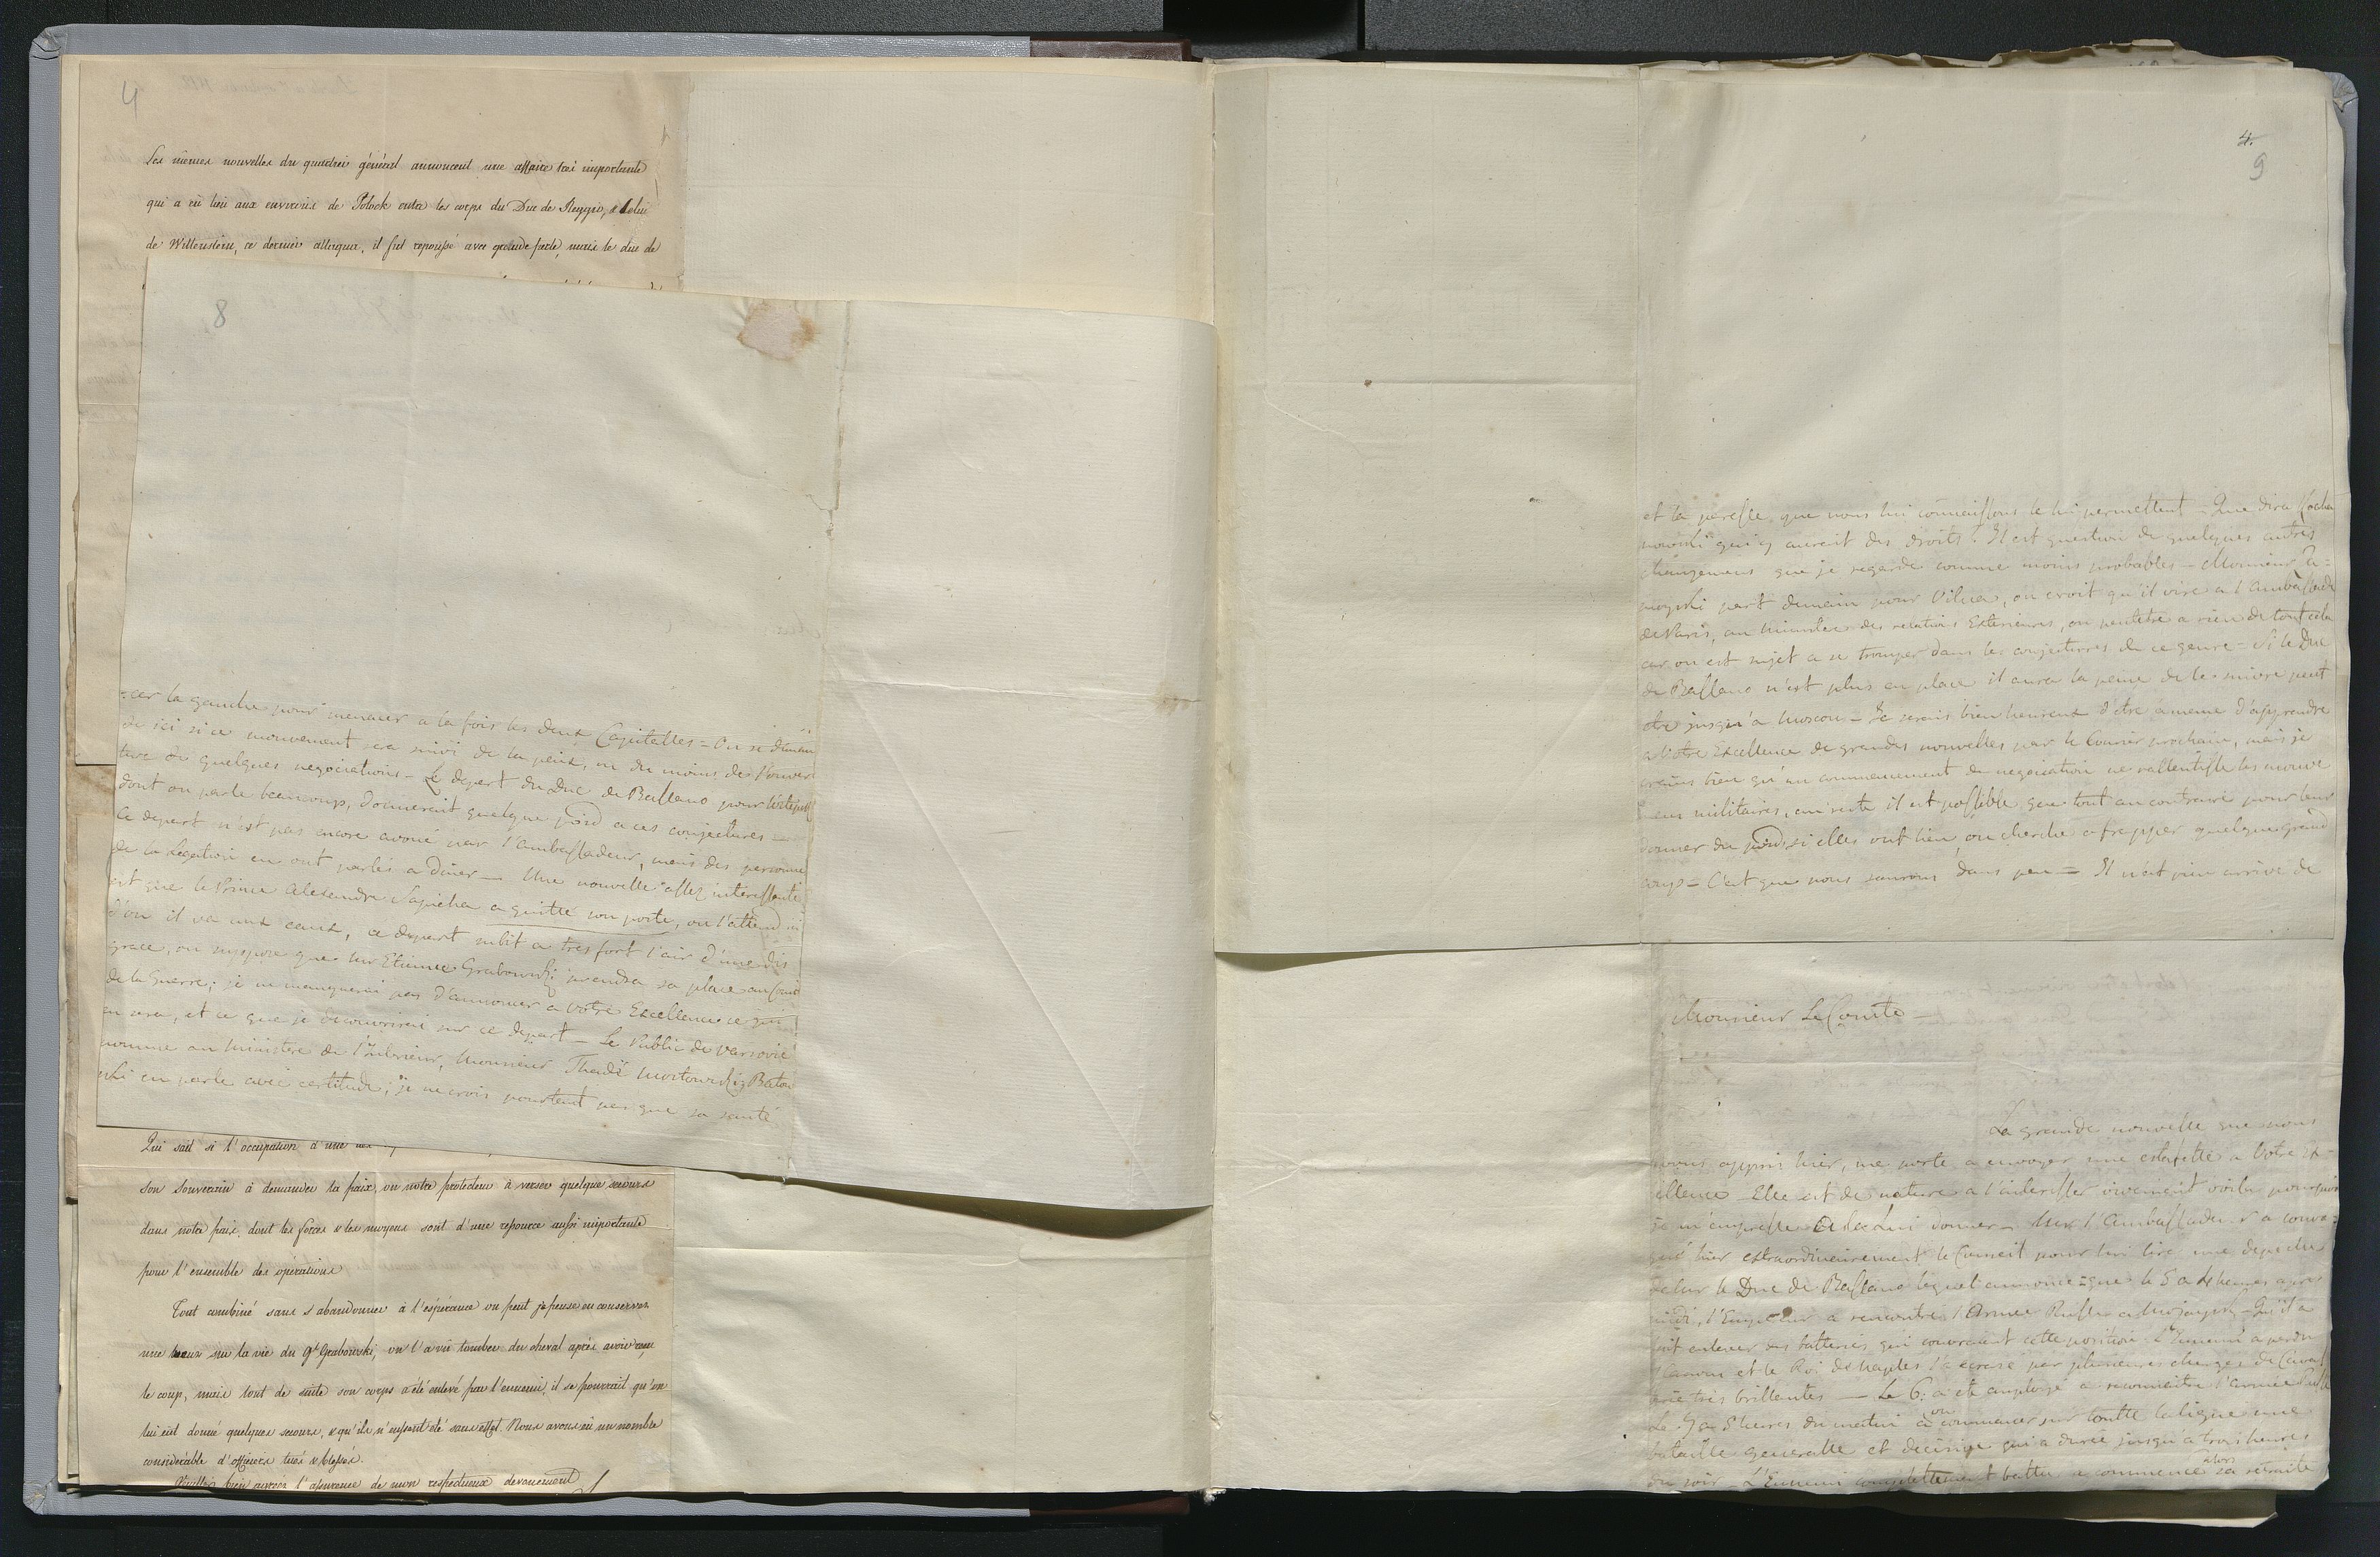 4
Les mêmes nouvelles du quartier général annoncent une affaire très importante
qui a eû lieu aux environs de Polock entre les corps du Duc de Reggio, & celui
de Wittenstein, ce dernier attaqua, il fut repoussé avec grande perte, mais le duc de
8
-cer la gauche pour menacer a la fois les deux Capitalles = On se deman
de ici si ce mouvement sera suivi de la paix, ou du moins de l'ouver
ture de quelques negociations - Le depart du Duc de Bassano pour
dont on parle beaucoup, donnerait quelque poid a ces conjectures
Ce depart n'est pas encore avoué par l'Ambassadeur, mais des personne
de la Legation en ont parlés a diner — Une nouvelle assez interessante
est que le Prince Alexandre Sapieha a quitté son poste, on l'attend ici
d'ou il va aux eaux, ce depart subit a tres fort l'air d'une dis
grace, on suppose que Mr Etienne Grabowski prendra sa place au
de la Guerre; je ne manquerai pas d'annoncer a Votre Excellence ce qui
en sera, et ce que je decouvrirai sur ce depart — Le Public de Varsovie
nomme au Ministere de l'Interieur, Monsieur Thadé Mostowski,
ski en parle avec certitude; je ne crois pourtant pas que sa santé
Qui sait si l'occupation d'une
son Souverain à demander la paix, ou notre protecteur à verser quelque secours
dans notre païs, dont les forces & les moyens sont d'une ressource aussi importante
pour l'ensemble des opérations
Tout combiné sans s'abandonner à l'espérance on peut je pense en conserver
une sur la vie du Gl Grabowski, on l'a vû tomber du cheval après avoir reçu
le coup, mais tout de suite son corps a été enlevé par l'ennemi, il se pourrait qu'on
lui eût donné quelques secours, & qu'ils n'eussent été sans effet. Nous avons eû un nombre
considérable d'officiers tués & blessés.
Veuillez bien agréer l'assurance de mon respectueux devouement
4.
9
et la paresse que nous lui connaissons le lui permettent - Que dira Kocha
nowski qui y aurait des droits? Il est question de quelques autres
changemens que je regarde comme moins probables - Monsieur
part demain pour Vilna, on croit qu'il vise a l'Ambassade
de Paris, au Ministere des relations Exterieures, ou peutetre a rien de tout cela
car on est sujet a se tromper dans les conjectures de ce genre - Si le Duc
de Bassano n'est plus en place il aura la peine de le suivre peut
etre jusqu'a Moscou - Je serais bien heureux d'etre a meme d'apprendre
a Votre Excellence de grandes nouvelles par le Courier prochain, mais je
crains bien qu'un commencement de negociation ne rallentisse les mouve
mens militaires, en suite il est possible que tout au contraire pour leur
donner du poid, si elles ont lieu, on cherche a frapper quelque grand
coup - C'est que nous saurons dans peu = Il n'est rien arrivé de
Monsieur Le Comte —
La grande nouvelle que nous
avons appris hier, me porte a envoyer une estafette a Votre Ex-
cellence - Elle est de nature a l'interesser vivement voila pourquoi
je m'empresse de la Lui donner - Mr l'Ambassadeur a convo=
qué hier extraordinairement le Conseil pour lui lire une depeche
de Mr le Duc de Bassano lequel annonce que le 5 a 4 heures apres
midi, l'Empereur a rencontré l'Armée Russe a Mojaysk - Qu'il a
fait enlever des batteries qui couvraient cette position - L'Ennemi a perdu
et le Roi de Naples l'a ecrasé par plusieures charges de Caval
rie tres brillentes — Le 6: a eté employé a reconnaitre l'armée Russe
Le 7 a 5 heures du matin a on commencer sur toutte la ligne une
bataille generalle et decisive qui a durée jusqu'a trois heures
du soir - L'Ennemi complettement battu a commencé alors sa retraite